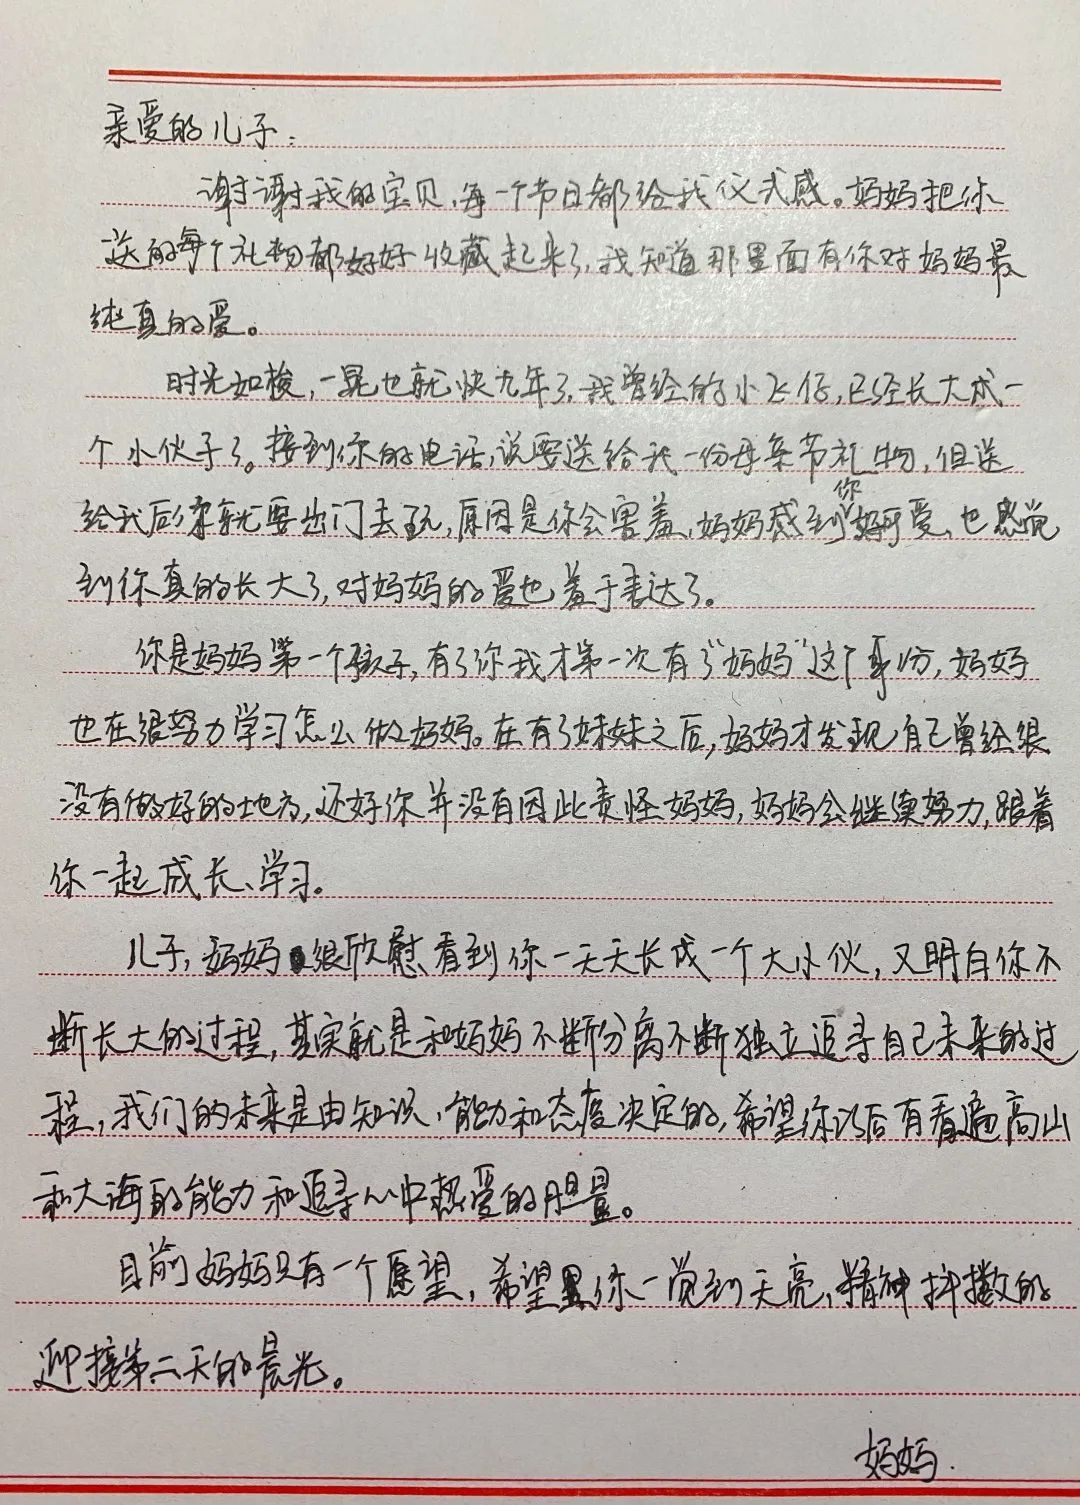 亲爱的儿子：
谢谢我的宝贝，每一个节日都给我仪式感。妈妈把你
送的每个礼物都好好收藏起来了，我知道那里面有你对妈妈最
纯真的爱。
时光如梭，一晃也就快九年了，我曾经的小飞仔，已经长大成一
个小伙子了。接到你的电话，说要送给我一份母亲节礼物，但送
给我后你就要出门去玩，原因是你会害羞，妈妈感到你好可爱、也感觉
到你真的长大了，对妈妈的爱也羞于表达了。
你是妈妈第一个孩子，有了你我才第一次有了“妈妈”这个身份，妈妈
也在很努力学习怎么做妈妈。在有了妹妹之后，妈妈才发现自己曾经很
没有做好的地方，还好你并没有因此责怪妈妈，妈妈会继续努力，跟着
你一起成长、学习。
儿子，妈妈很欣慰看到你一天天长成一个大小伙，又明白你不
断长大的过程，其实就是和妈妈不断分离不断独立追寻自己未来的过
程，我们的未来是由知识、能力和态度决定的，希望你以后有看遍高山
和大海的能力和追寻心中热爱的胆量。
目前妈妈只有一个愿望，希望你一觉到天亮，精神抖擞的
迎接第二天的晨光。
妈妈.